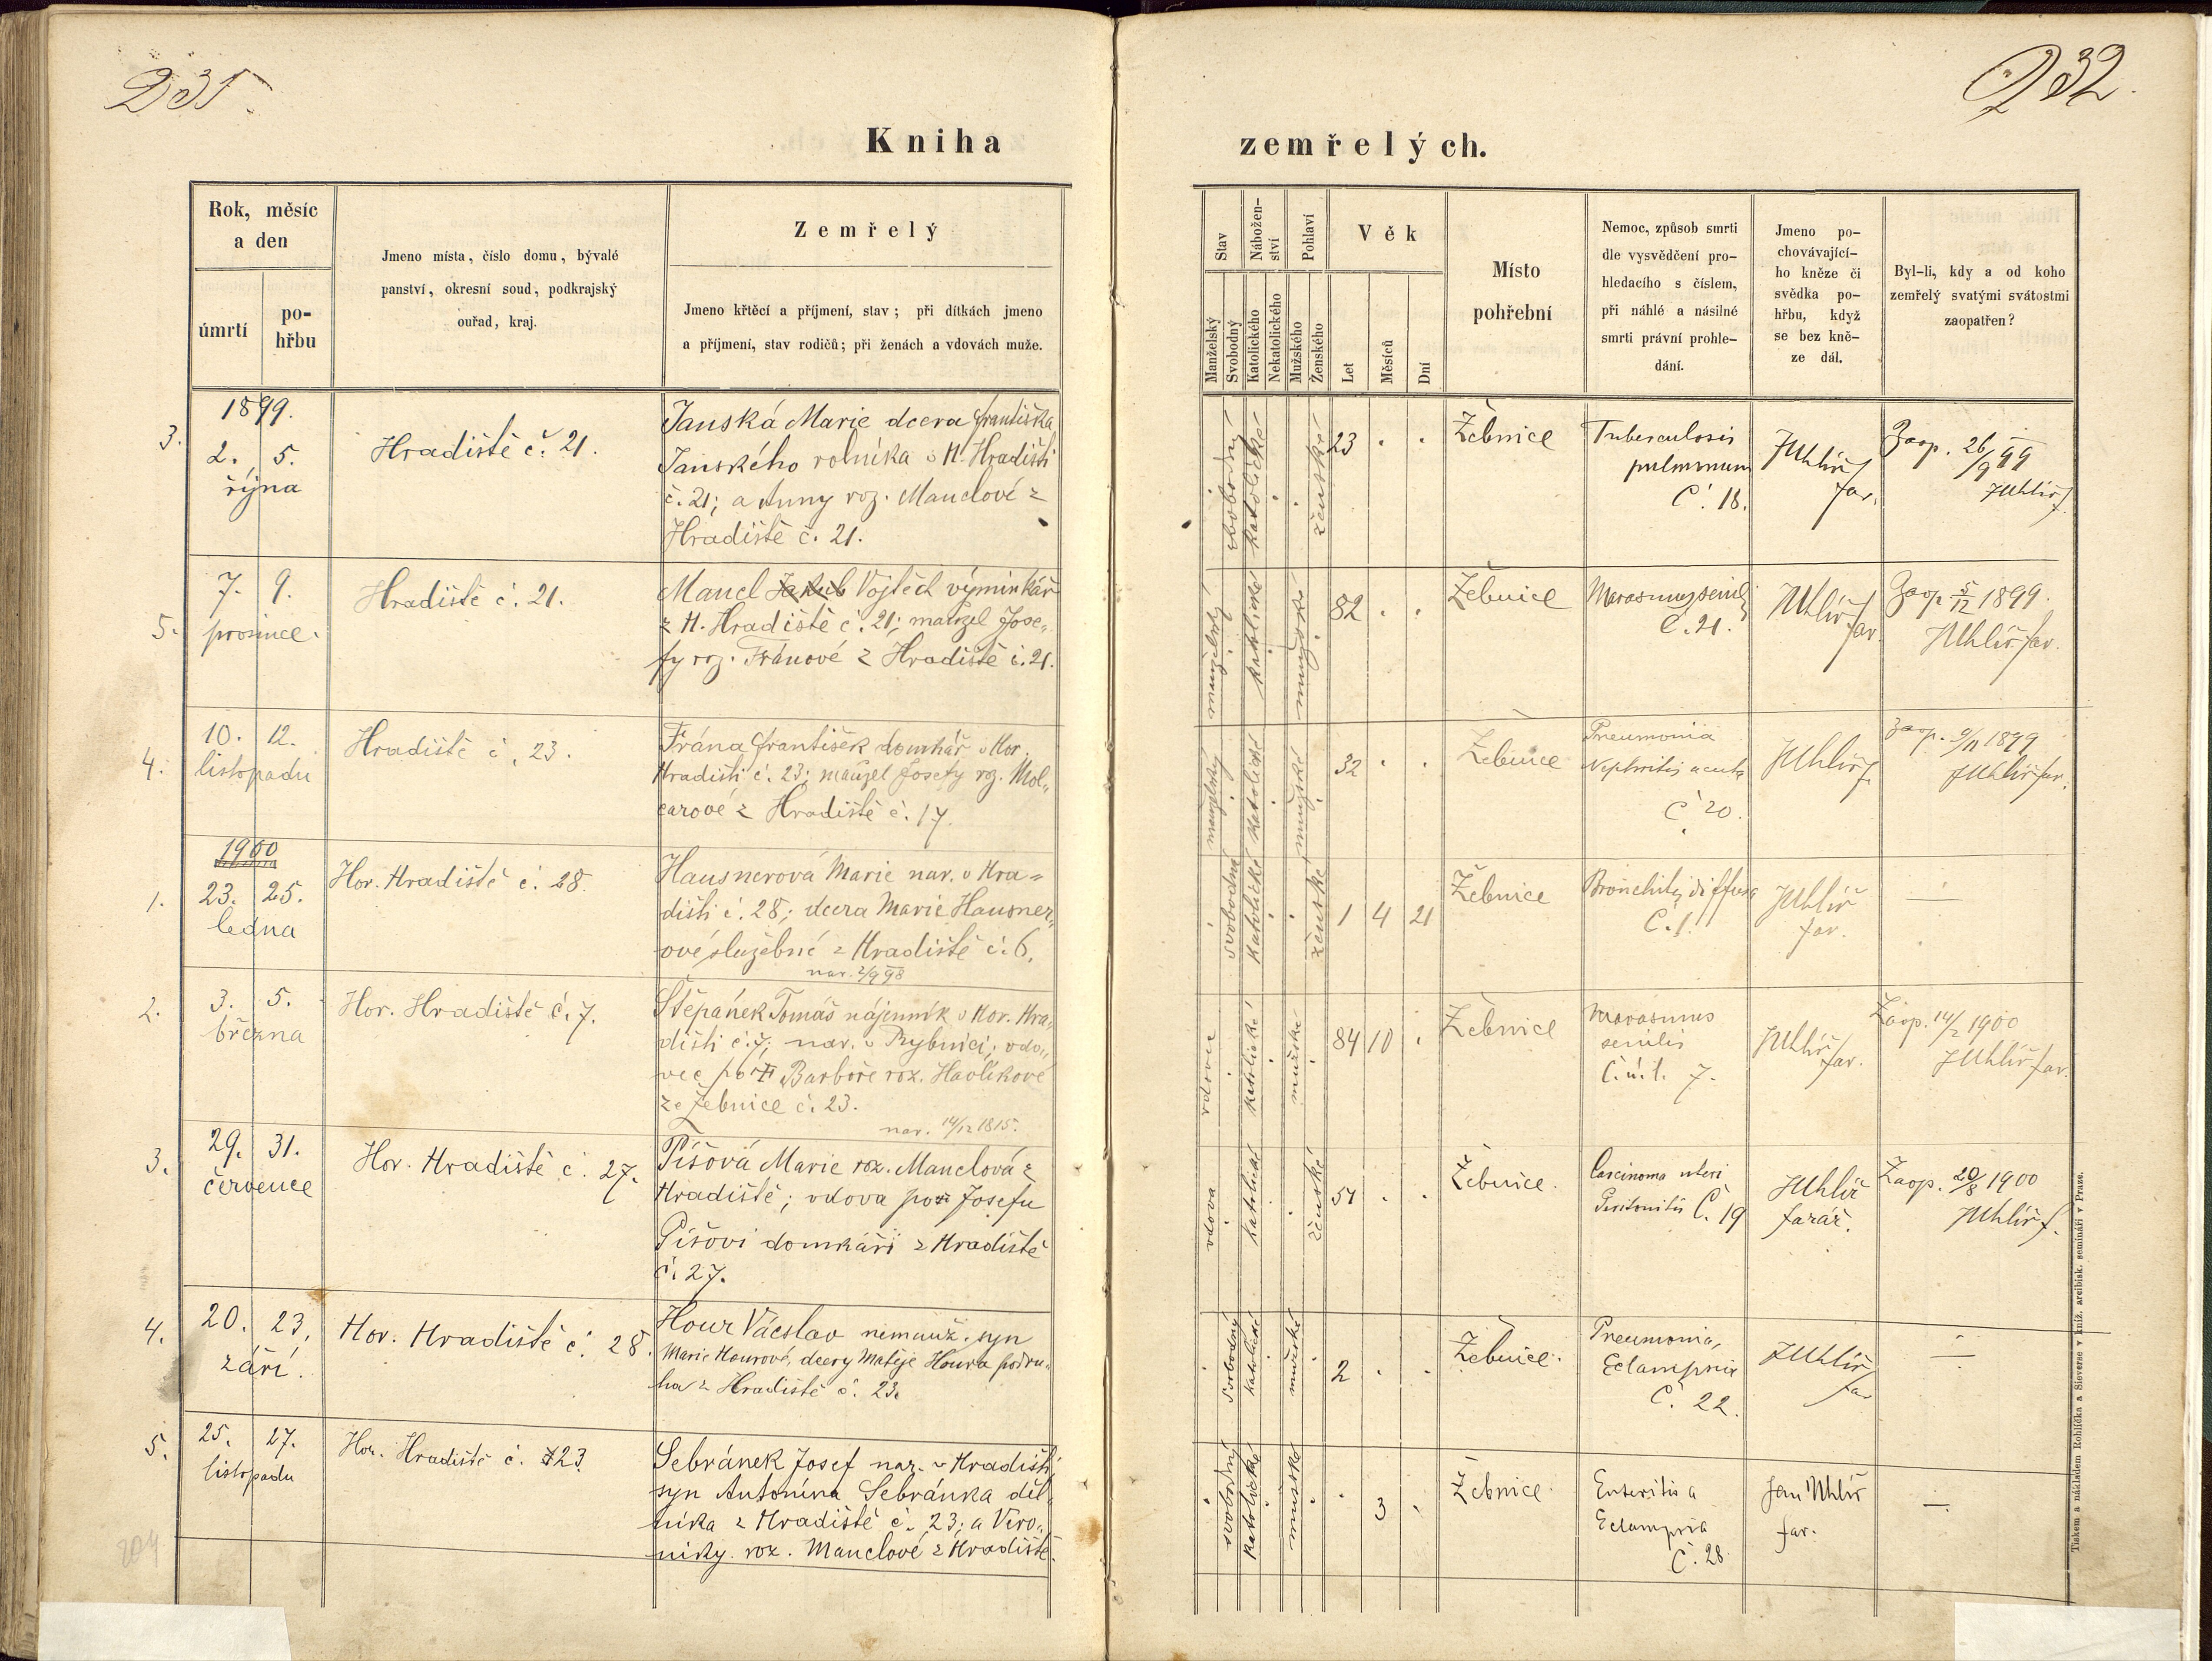 235.
232.
Kniha
zemřelých.
Rok, měsíc
a den
úmrtí
po-
hřbu
Jmeno místa, číslo domu, bývalé
panství, okresní soud, podkrajský
ouřad, kraj.
Zemřelý
Jmeno křtěcí a příjmení, stav; při dítkách jmeno
a příjmení, stav rodičů; při ženách a vdovách muže.
Stav
Manželský
Svobodný
Nábožen-
ství
Katolického
Nekatolického
Pohlaví
Mužského
Ženského
Věk
Let
Měsíců
Dní
Místo
pohřební
Nemoc, způsob smrti
dle vysvědčení pro-
hledacího s číslem,
při náhlé a násilné
smrti právní prohle-
dání.
Jmeno po-
chovávající-
ho kněze či
svědka po-
hřbu, když
se bez kně-
ze dál.
Byl-li, kdy a od koho
zemřelý svatými svátostmi
zaopatřen?
3.
1899.
2. 5.
října
Hradiště č. 21.
Janská Marie dcera Františka
Janského rolníka v H. Hradišti
č. 21; a Anny roz. Manclové z
Hradiště č. 21.
svobodný
katolické
ženské
23 . .
Žebnice
Tuberculosis
pulmonum
Č. 18.
JUhlíř
far.
Zaop. 26/9 99
JUhlíř f.
5.
7. 9.
prosince.
Hradiště č. 21.
Mancl Jakub Vojtěch výminkář
z H. Hradiště č. 21; manžel Jose„
fy roz. Fránové z Hradiště č. 21.
manželský
katolické
mužské
82 . .
Žebnice
Marasmus senil
Č. 21.
JUhlíř
far.
Zaop. 5/12 1899.
JUhlíř far.
4.
10. 12.
listopadu
Hradiště č. 23.
Frána František domkář v Hor.
Hradišti č. 23; manžel Josefy roz. Mol„
carové z Hradiště č. 17.
manželský
katolické
mužské
32 . .
Žebnice
Pneumonia
Nephritis acuta
Č 20.
JUhlíř f.
Zaop. 9/11 1899
JUhlíř far.
1900
1.
23. 25.
ledna
Hor. Hradiště č. 28.
Hausnerová Marie nar. v Hra=
dišti č. 28; dcera Marie Hausner„
ové služebné z Hradiště č. 6.
nar. 2/9 98
svobodná
katolické
ženské
1 4 21
Žebnice
Bronchitis diffusa
Č. 1.
JUhlíř
far.
—
2.
3. 5.
března
Hor. Hradiště č. 7.
Štěpánek Tomáš nájemník v Hor. Hra„
dišti č. 7; nar. v Rybnici; vdo„
vec po † Barboře roz. Havlíkové
ze Žebnice č. 23.
nar. 14/12 1815.
vdovec
katolické
mužské
84 10 .
Žebnice
Marasmus
senilis
Č. ú. l. 7.
JUhlíř
far.
Zaop. 14/2 1900
JUhlíř far.
3.
29. 31.
července
Hor. Hradiště č. 27.
Píšová Marie roz. Manclová z
Hradiště; vdova po † Josefu
Píšovi domkáři z Hradiště
č. 27.
vdova
katolické
ženské
51 . .
Žebnice.
Carcinoma uteri
Peritonitis Č. 19
JUhlíř
farář.
Zaop. 20/8 1900
JUhlíř f.
4.
20. 23.
září.
Hor. Hradiště č. 28.
Hour Václav nemanž. syn
Marie Hourové, dcery Matěje Houra podru„
ha z Hradiště č. 23.
svobodný
katolické
mužské
2 . .
Žebnice.
Pneumonia,
Eclampsia
Č. 22.
JUhlíř
far
—
5.
25. 27.
listopadu
Hor. Hradiště č. 23.
Sebránek Josef nar. v Hradišti,
syn Antonína Sebránka děl„
níka z Hradiště č. 23; a Vero„
niky roz. Manclové z Hradiště.
svobodný
katolické
mužské
. 3 .
Žebnice
Enteritis a
Eclampsia
Č. 28.
Jan Uhlíř
far.
—
204
Tiskem a nákladem Rohlíčka a Sieverse v kníž. arcibisk. semináři v Praze.